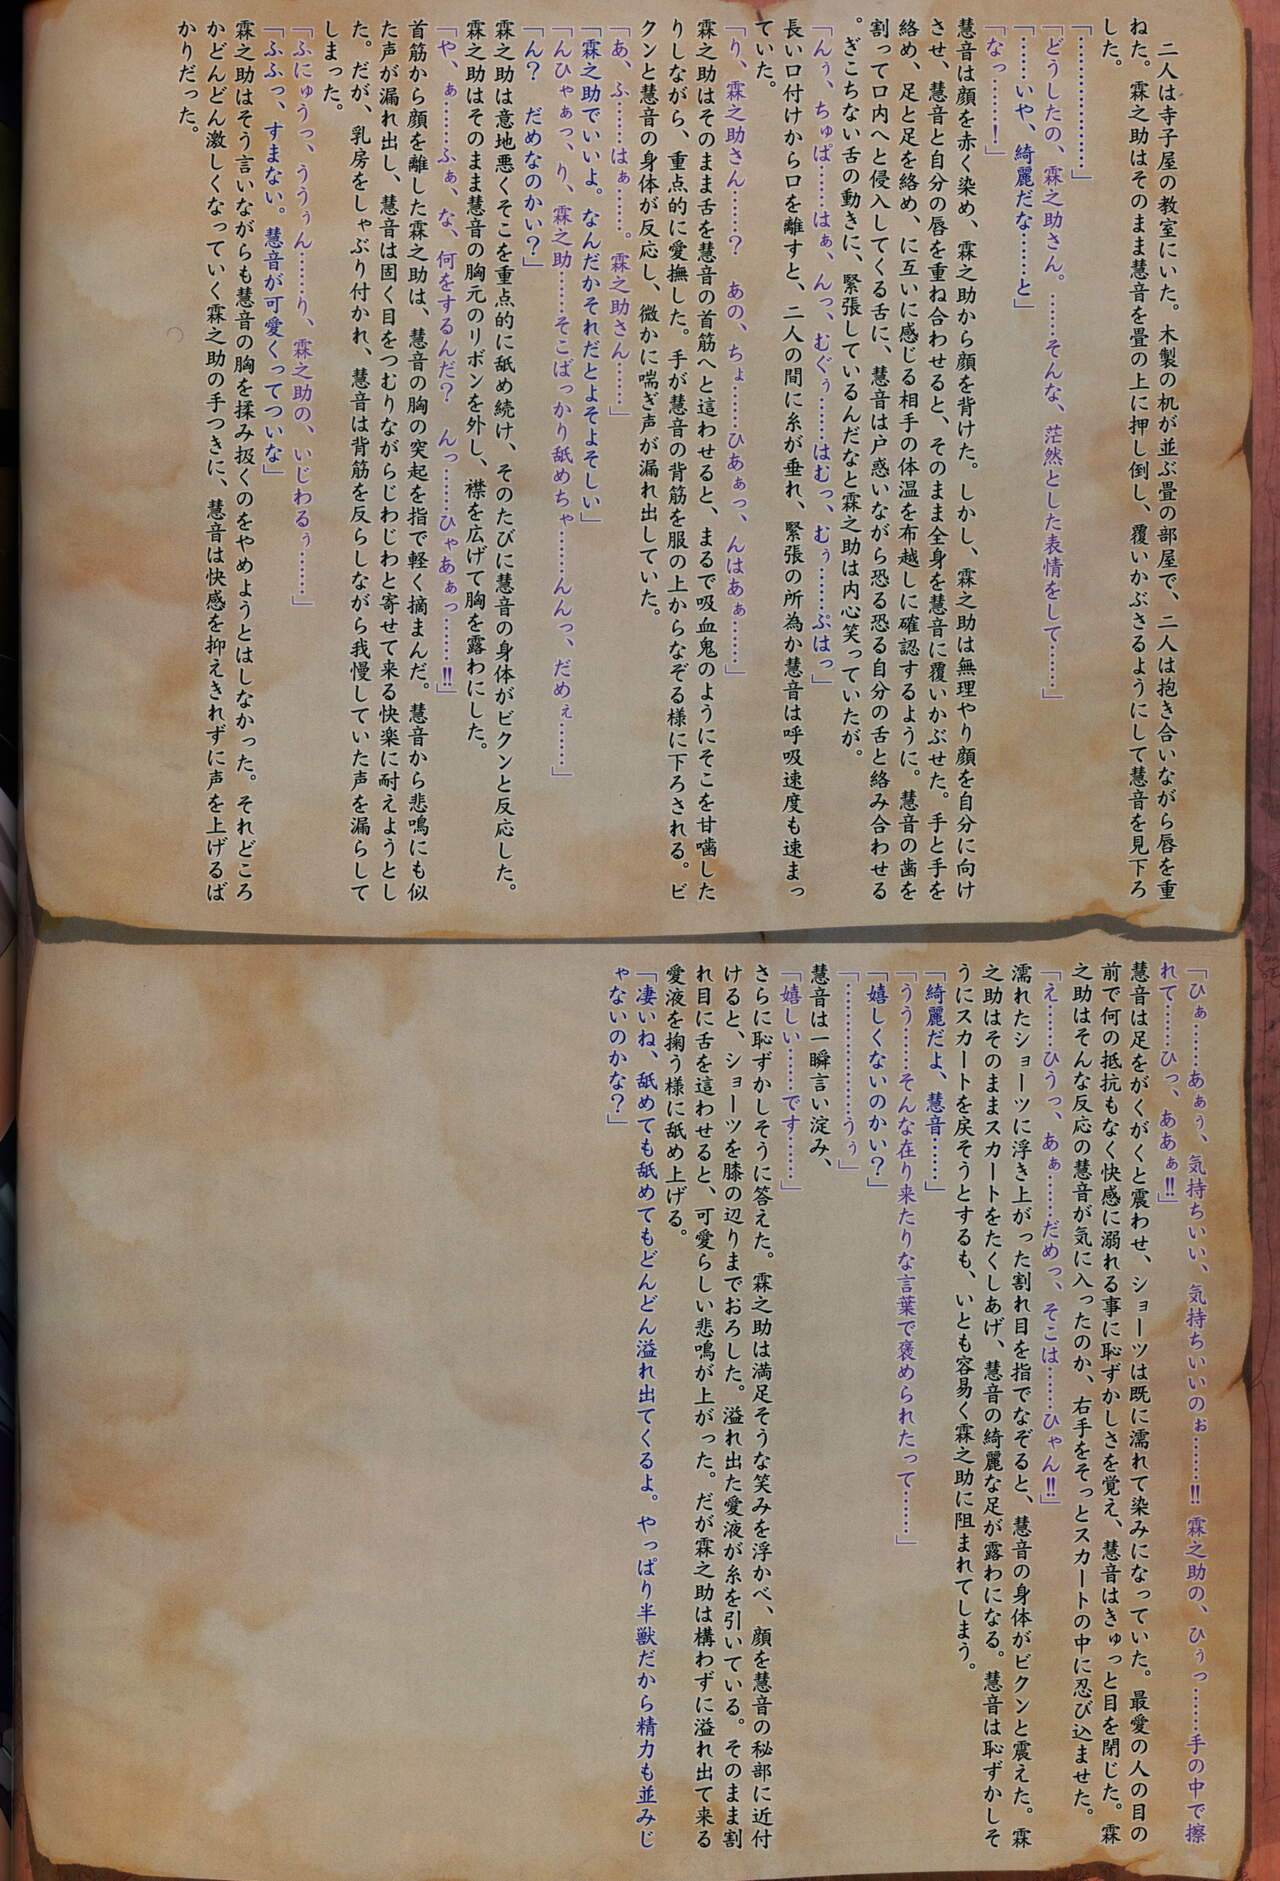 二人は寺子屋の教室にいた。木製の机が並ぶ畳の部屋で、二人は抱き合いながら唇を重
ねた。霖之助はそのまま慧音を畳の上に押し倒し、覆いかぶさるようにして慧音を見下ろ
した。
「………………」
「どうしたの、霖之助さん。……そんな、茫然とした表情をして……」
「……いや、綺麗だな……と」
「なっ……！」
慧音は顔を赤く染め、霖之助から顔を背けた。しかし、霖之助は無理やり顔を自分に向け
させ、慧音と自分の唇を重ね合わせると、そのまま全身を慧音に覆いかぶせた。手と手を
絡め、足と足を絡め、に互いに感じる相手の体温を布越しに確認するように。慧音の歯を
割って口内へと侵入してくる舌に、慧音は戸惑いながら恐る恐る自分の舌と絡み合わせる
。ぎこちない舌の動きに、緊張しているんだなと霖之助は内心笑っていたが。
「んぅ、ちゅぱ……はぁ、んっ、むぐぅ……はむっ、むぅ……ぷはっ」
長い口付けから口を離すと、二人の間に糸が垂れ、緊張の所為か慧音は呼吸速度も速まっ
ていた。
「り、霖之助さん……？　あの、ちょ……ひあぁっ、んはあぁ……」
霖之助はそのまま舌を慧音の首筋へと這わせると、まるで吸血鬼のようにそこを甘噛した
りしながら、重点的に愛撫した。手が慧音の背筋を服の上からなぞる様に下ろされる。ビ
クンと慧音の身体が反応し、微かに喘ぎ声が漏れ出していた。
「あ、ふ……はぁ……。霖之助さん……」
「霖之助でいいよ。なんだかそれだとよそよそしい」
「んひゃぁっ、り、霖之助……そこばっかり舐めちゃ……んんっ、だめぇ……」
「ん？　だめなのかい？」
霖之助は意地悪くそこを重点的に舐め続け、そのたびに慧音の身体がビクンと反応した。
霖之助はそのまま慧音の胸元のリボンを外し、襟を広げて胸を露わにした。
「や、ぁ……ふぁ、な、何をするんだ？　んっ……ひゃあぁっ……‼」
首筋から顔を離した霖之助は、慧音の胸の突起を指で軽く摘まんだ。慧音から悲鳴にも似
た声が漏れ出し、慧音は固く目をつむりながらじわじわと寄せて来る快楽に耐えようとし
た。だが、乳房をしゃぶり付かれ、慧音は背筋を反らしながら我慢していた声を漏らして
しまった。
「ふにゅうっ、ううぅん……り、霖之助の、いじわるぅ……」
「ふふっ、すまない。慧音が可愛くってついな」
霖之助はそう言いながらも慧音の胸を揉み扱くのをやめようとはしなかった。それどころ
かどんどん激しくなっていく霖之助の手つきに、慧音は快感を抑えきれずに声を上げるば
かりだった。
「ひぁ……あぁぅ、気持ちいい、気持ちいいのぉ……‼ 霖之助の、ひぅっ……手の中で擦
れて……ひっ、ああぁ‼」
慧音は足をがくがくと震わせ、ショーツは既に濡れて染みになっていた。最愛の人の目の
前で何の抵抗もなく快感に溺れる事に恥ずかしさを覚え、慧音はきゅっと目を閉じた。霖
之助はそんな反応の慧音が気に入ったのか、右手をそっとスカートの中に忍び込ませた。
「え……ひうっ、あぁ……だめっ、そこは……ひゃん‼」
濡れたショーツに浮き上がった割れ目を指でなぞると、慧音の身体がビクンと震えた。霖
之助はそのままスカートをたくしあげ、慧音の綺麗な足が露わになる。慧音は恥ずかしそ
うにスカートを戻そうとするも、いとも容易く霖之助に阻まれてしまう。
「綺麗だよ、慧音……」
「うう……そんな在り来たりな言葉で褒められたって……」
「嬉しくないのかい？」
「………………うぅ」
慧音は一瞬言い淀み、
「嬉しい……です……」
さらに恥ずかしそうに答えた。霖之助は満足そうな笑みを浮かべ、顔を慧音の秘部に近付
けると、ショーツを膝の辺りまでおろした。溢れ出た愛液が糸を引いている。そのまま割
れ目に舌を這わせると、可愛らしい悲鳴が上がった。だが霖之助は構わずに溢れ出て来る
愛液を掬う様に舐め上げる。
「凄いね、舐めても舐めてもどんどん溢れ出てくるよ。やっぱり半獣だから精力も並みじ
ゃないのかな？」